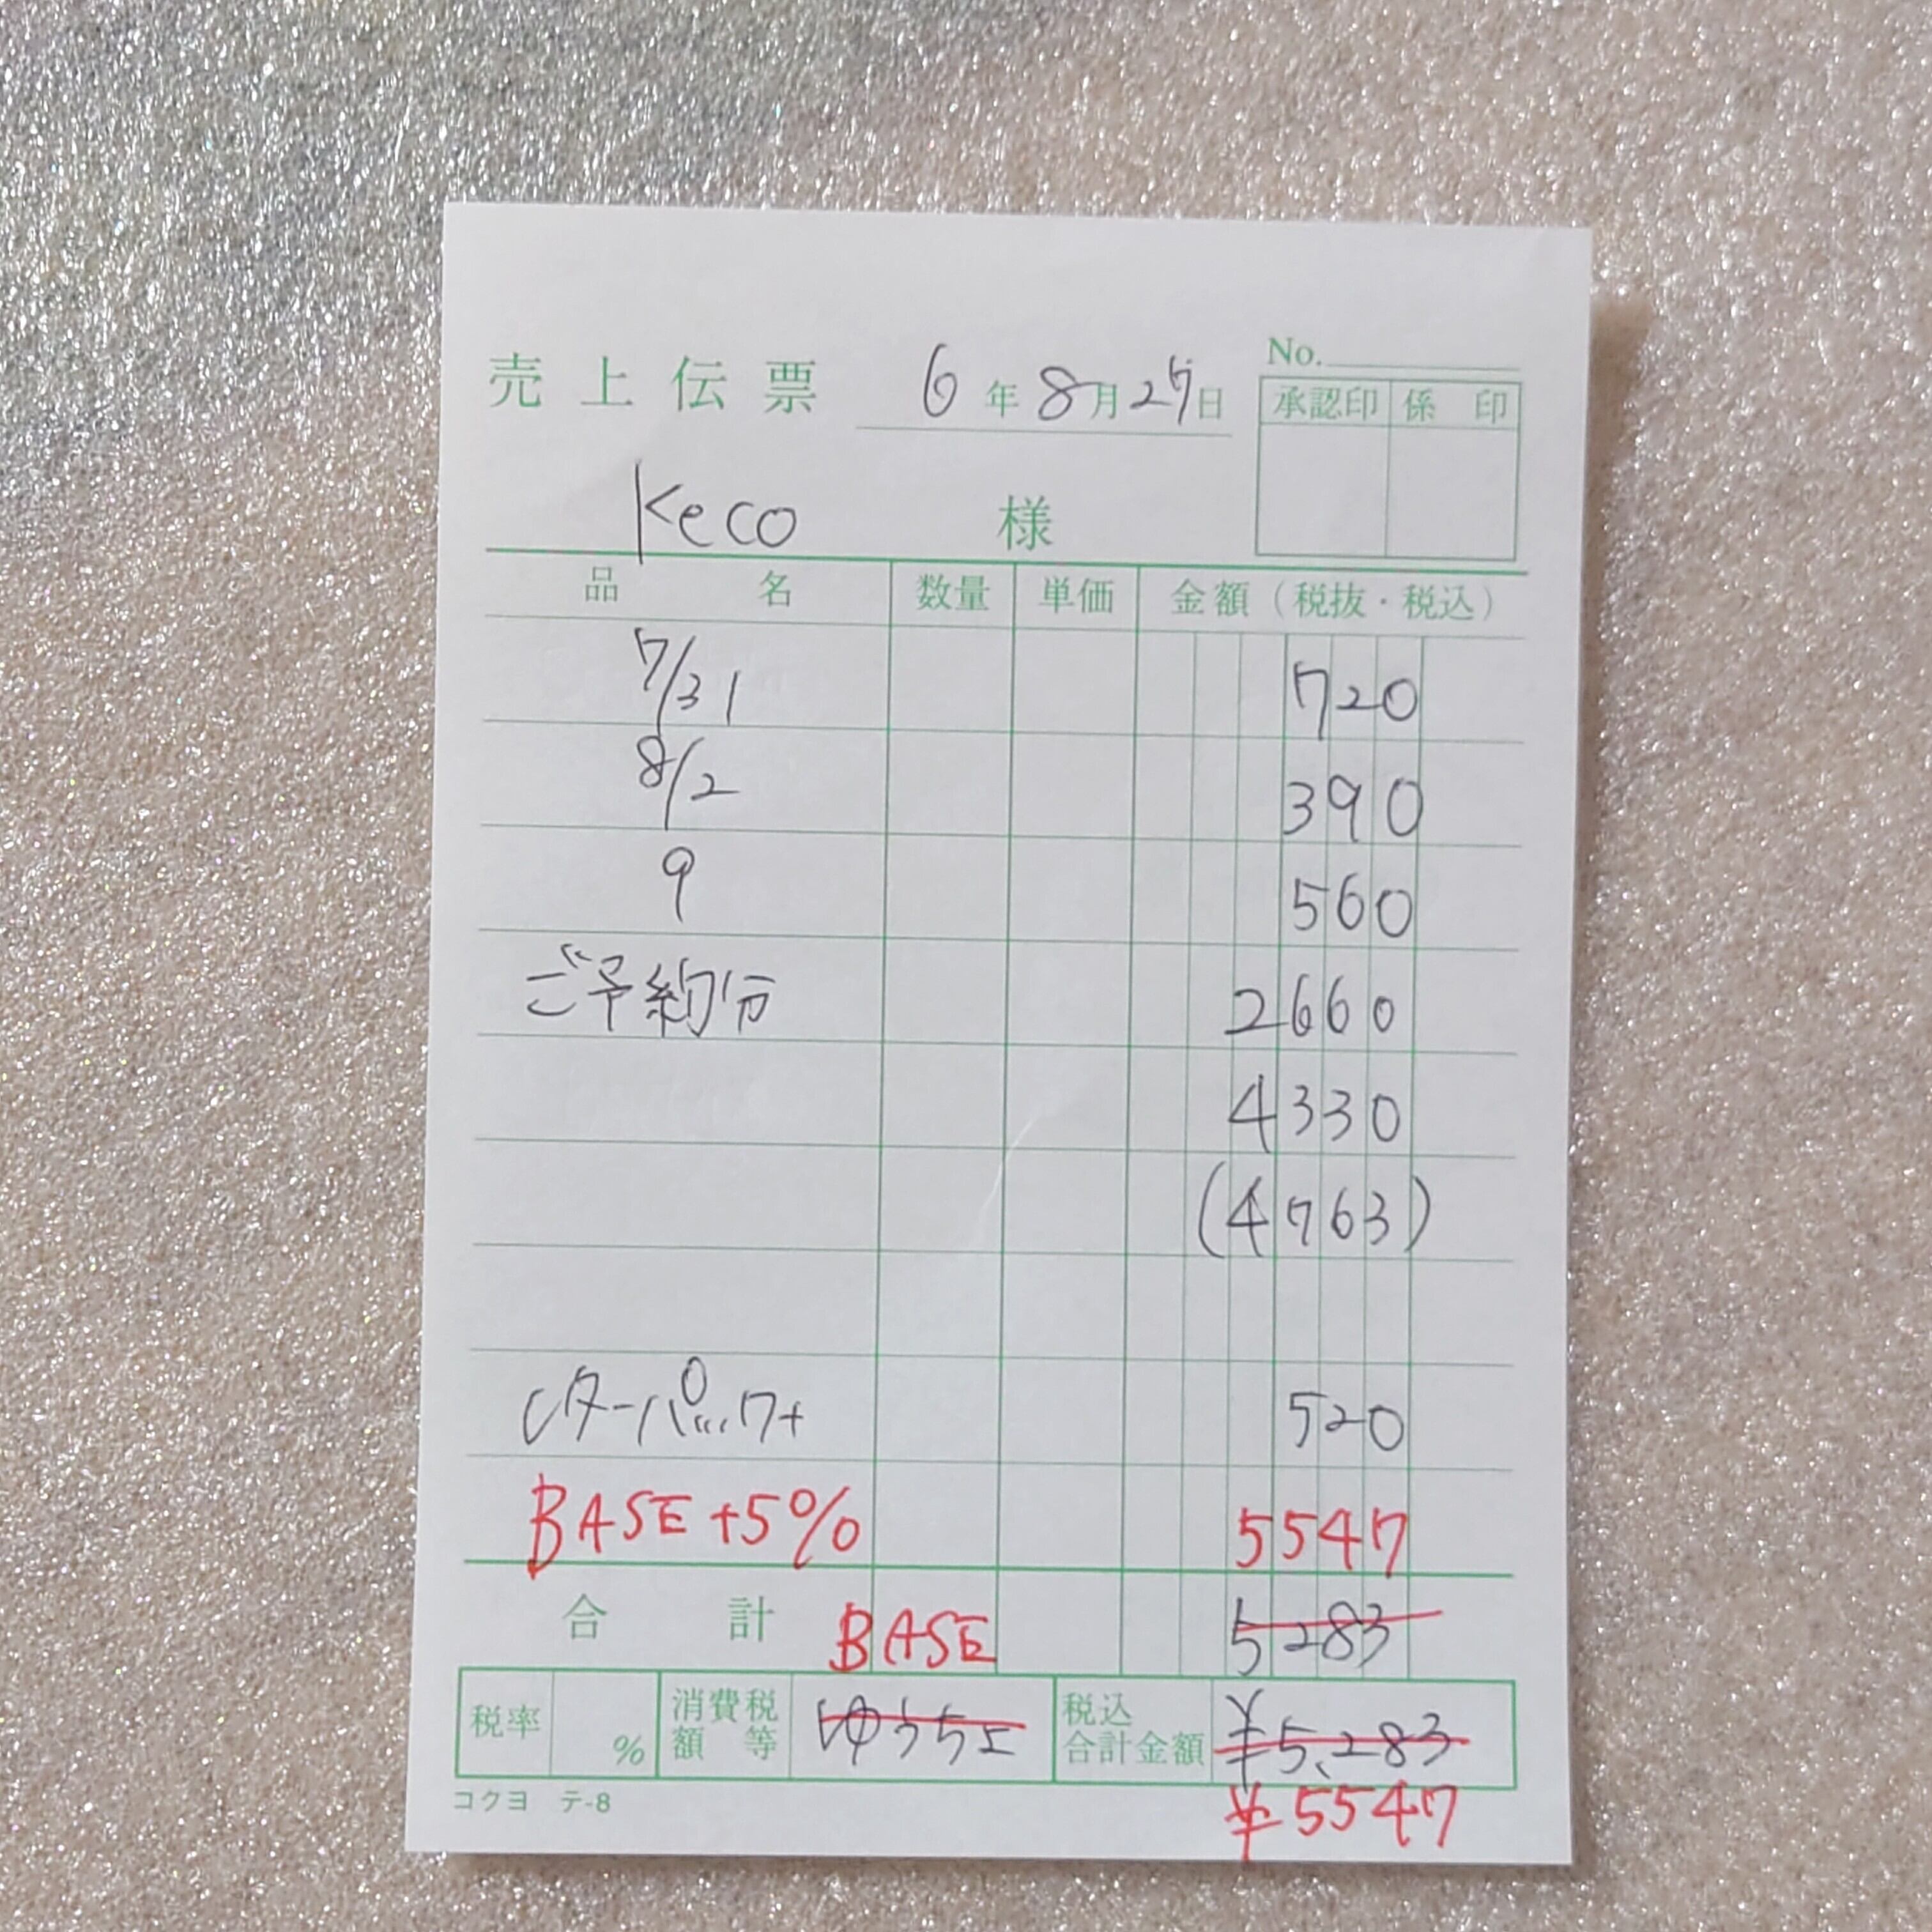 No.
売上伝票 6年8月27日
承認印 係印
Keco 様
品名 数量 単価 金額（税抜・税込）
7/31 720
8/2 390
9 560
ご予約分 2660
4330
(4763)
レターパック+ 520
BASE+5% 5547
合計 BASE 5283
税率 % 消費税額等 ゆうちょ 税込合計金額 ¥5,283
コクヨ テ-8 ¥5547